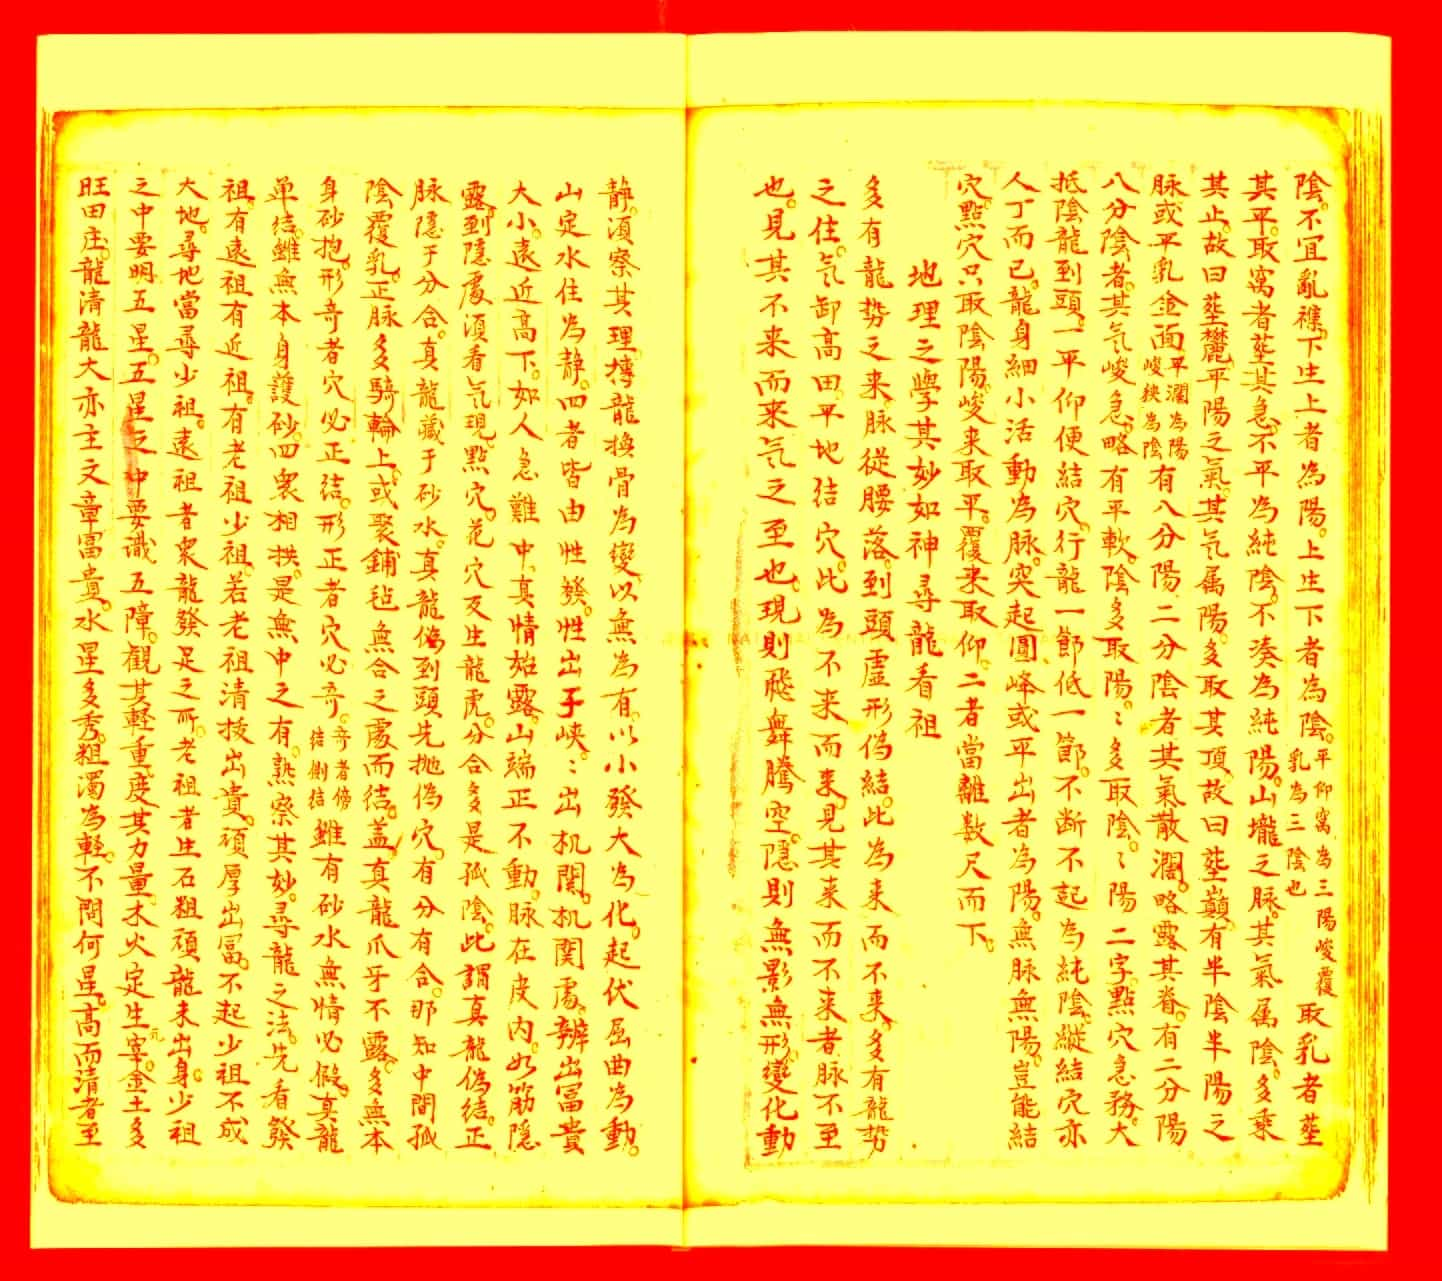 陰。不宜亂襍。下生上者為陽。上生下者為陰。平仰窩為三陽峻覆乳為三陰也取乳者塟
其平。取窩者塟其急。不平為純陰。不湊為純陽。山壠之脉。其氣属陰。多乗
其止。故曰塟麓。平陽之氣。其氣属陽。多取其頂。故曰塟巔。有半陰半陽之
脉或平乳金面平濶為陽峻狹為陰有八分陽二分陰者其氣散濶。略露其脊。有二分陽
八分陰者。其气峻急。略有平軟。陰多取陽。〻多取陰。〻陽二字。點穴急務。大
抵陰龍到頭。一平仰便結穴。行龍一節低一節。不断不起為純陰。縱結穴亦
人丁而已。龍身細小活動為脉。突起圓峰或平出者為陽。無脉無陽。豈能結
穴。點穴只取陰陽。峻来取平。覆来取仰。二者當離数尺而下。
地理之學其妙如神尋龍看祖
多有龍势之来脉従腰落。到頭虛形偽結。此為来而不来。多有龍势
之住。气卸高田。平地结穴。此為不来而来。見其来而不来者脉不至
也。見其不来而来气之至也。現則飛舞騰空。隱則無影無形。變化動
静。湏察其理。摶龍換骨為變。以無為有。以小發大為化。起伏屈曲為動。
山定水住為静。四者皆由性發。性出子峡。〻出机関。机関處。辨出冨貴
大小。遠近高下。如人急難中。真情始露。山端正不動。脉在皮内。如筋隠
露。到隠處湏看气現。點穴。花穴反生龍虎。分合多是孤陰。此謂真龍偽结。正
脉隠于分合。真龍藏于砂水。真龍偽到頭先抛偽穴。有分有合。那知中間孤
陰覆乳。正脉多騎輪上。或聚鋪毡無合之處而结。盖真龍爪牙不露。多無本
身砂抱。形竒者穴必正结。形正者穴必竒。竒者傍结倒结雖有砂水無情必假。真龍
单结。雖無本身護砂。四衆相拱。是無中之有。熟察其妙。尋龍之法。先看發
祖。有遠祖有近祖。有老祖少祖。若老祖清拔出貴。頑厚出冨。不起少祖不成
大地。尋地當尋少祖。遠祖者衆龍發足之所。老祖者生石粗頑龍未出身。少祖
之中要明五星。五星之中要識五障。觀其輕重。度其力量。木火定生宰元。金土多
旺田庄。龍清龍大亦主文章冨貴。水星多秀。粗濁為輕。不問何星。高而清者至